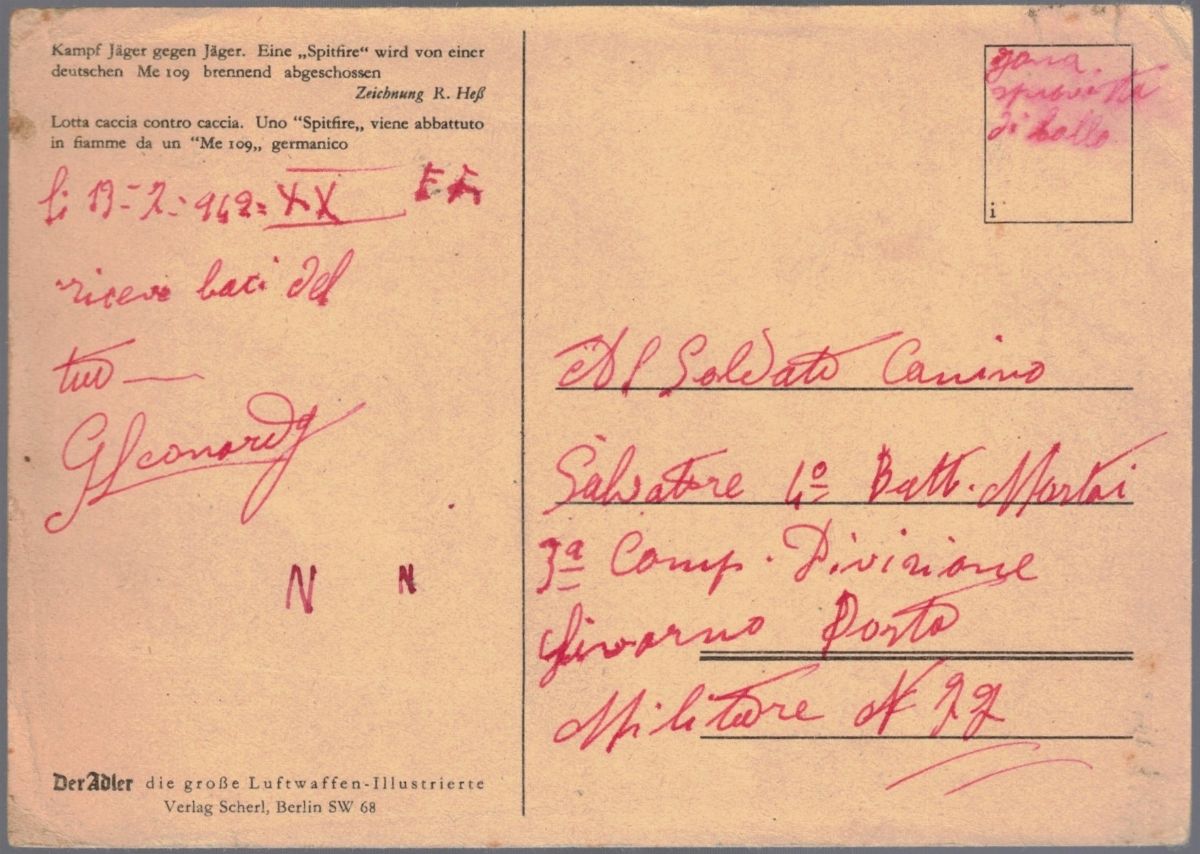 Kampf Jäger gegen Jäger. Eine „Spitfire“ wird von einer
deutschen Me 109 brennend abgeschossen
Zeichnung R. Heß
Lotta caccia contro caccia. Uno “Spitfire„ viene abbattuto
in fiamme da un “Me 109„ germanico
li 19-2-942= XX
riceve baci del
tuo
N N
Der Adler die große Luftwaffen-Illustrierte
Verlag Scherl, Berlin SW 68
zona
di bollo
i
Al Soldato Canino
Salvatore 4º Batt. Mortai
3ª Comp. Divisione
Livorno Posta
Militare N 22